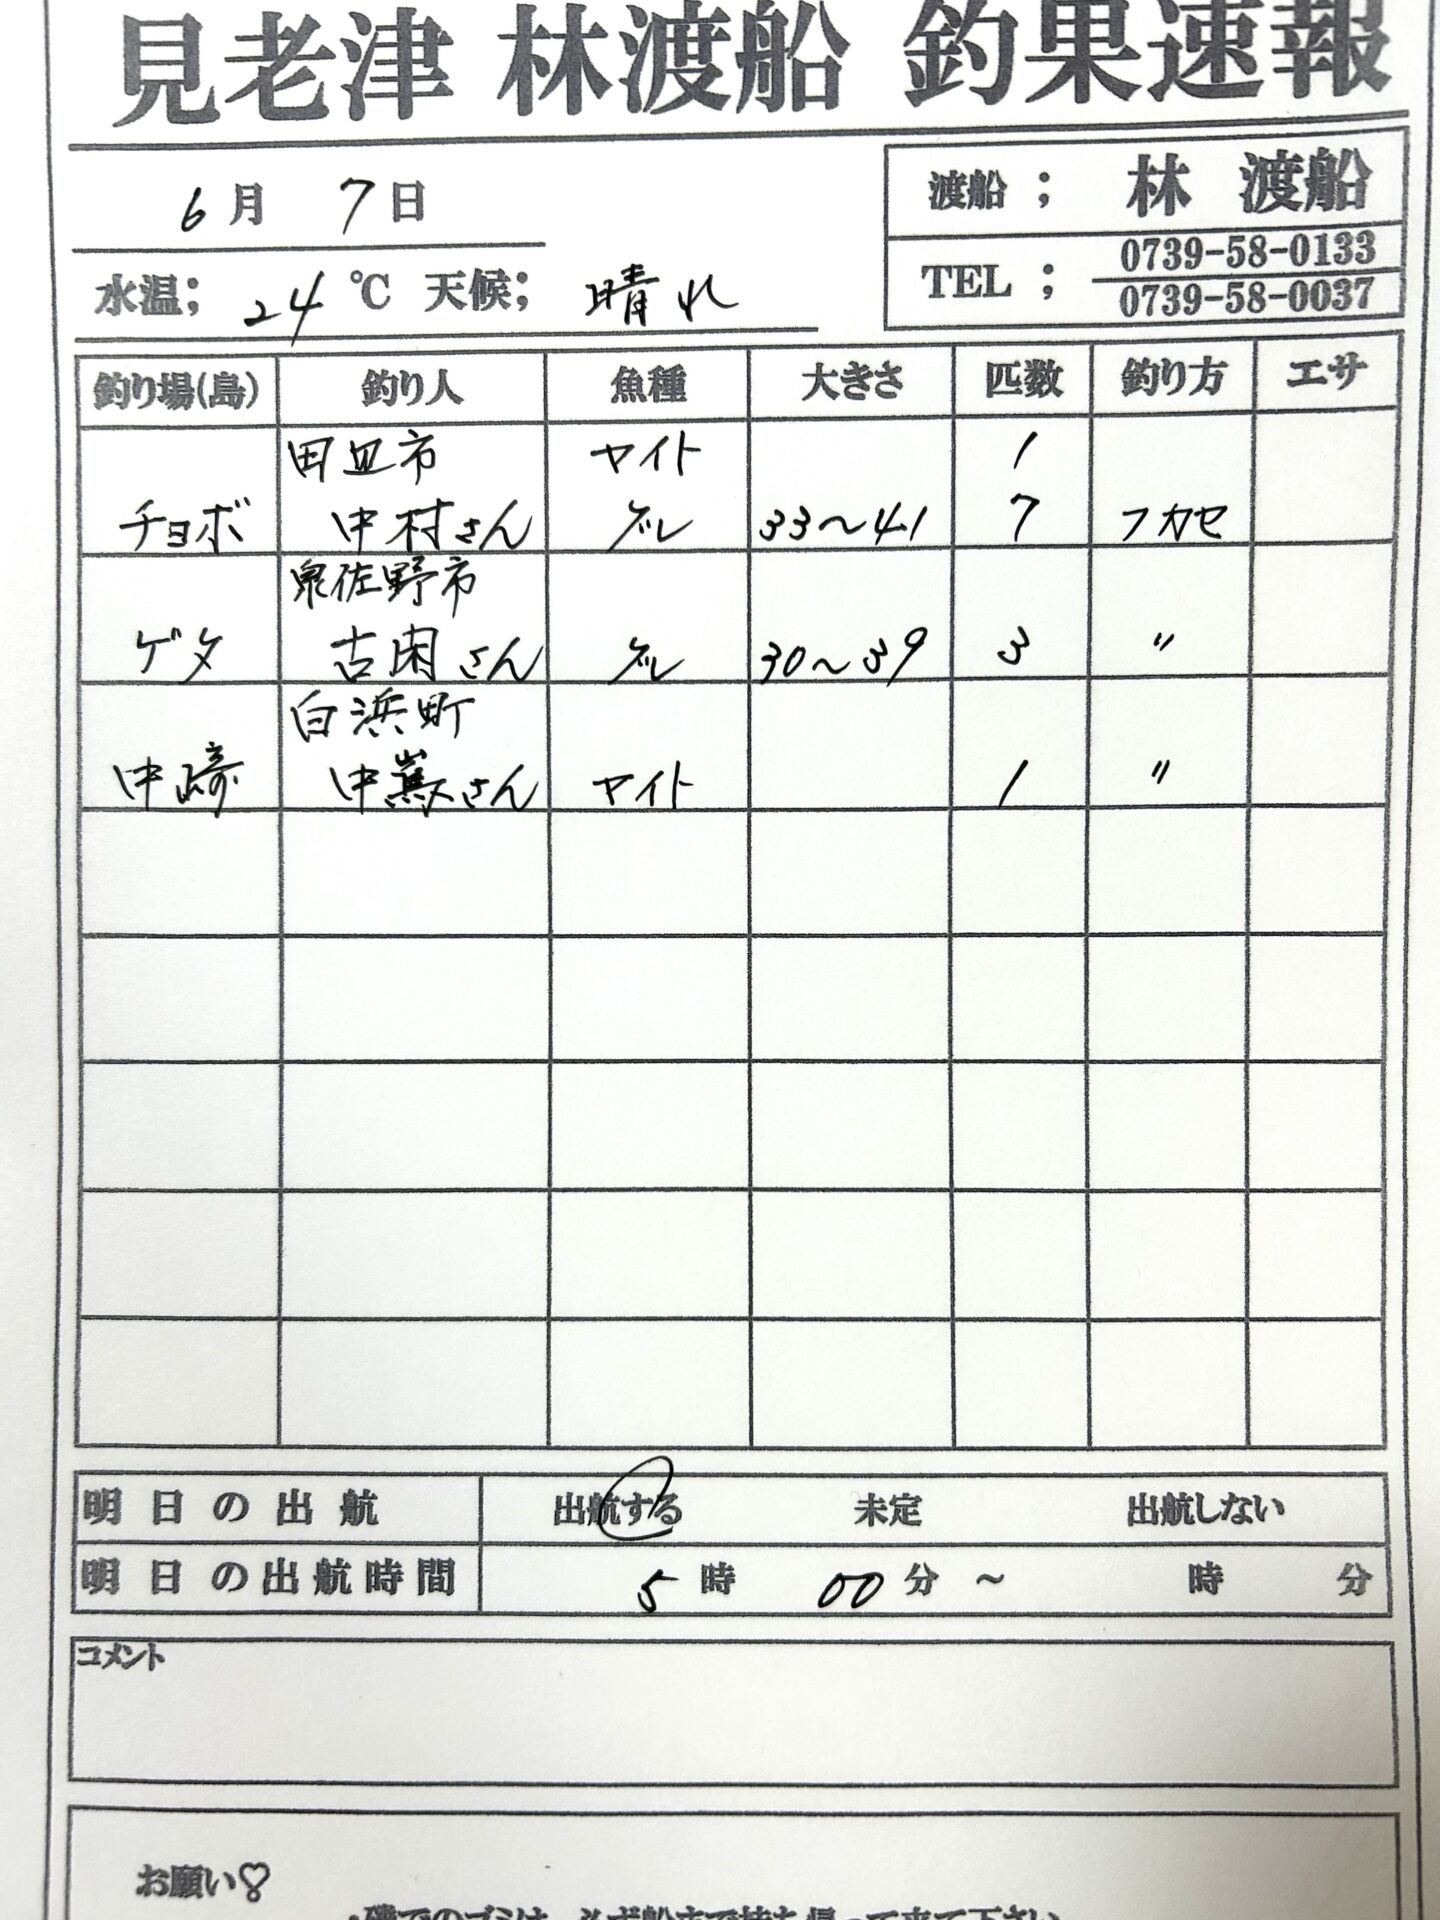 見老津 林渡船 釣果速報
6月 7日
渡船； 林 渡船
TEL； 0739-58-0133
0739-58-0037
水温； 24℃ 天候； 晴れ
釣り場(島) 釣り人 魚種 大きさ 匹数 釣り方 エサ
田辺市 ヤイト 1
チョボ 中村さん グレ 33〜41 7 フカセ
泉佐野市
ゲタ 古閑さん グレ 30〜39 3 〃
白浜町
中崎 中嶌さん ヤイト 1 〃
明日の出航 出航する 未定 出航しない
明日の出航時間 5時 00分 〜 時 分
コメント
お願い♡
・磯でのゴミは、必ず船まで持ち帰って来て下さい